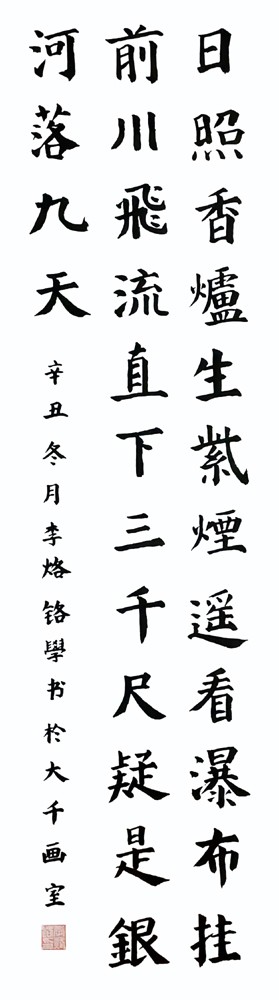 日照香爐生紫煙遥看瀑布挂
前川飛流直下三千尺疑是銀
河落九天
辛丑冬月李烙铬學书於大千画室